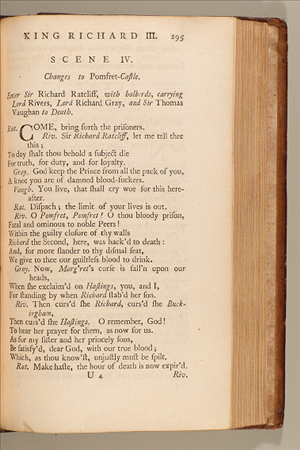 KING RICHARD III. 295
SCENE IV.
Changes to Pomfret-Castle.
Enter Sir Richard Ratcliff, with halberds, carrying
Lord Rivers, Lord Richard Gray, and Sir Thomas
Vaughan to Death.
Rat. COME, bring forth the prisoners.
Riv. Sir Richard Ratcliff, let me tell thee
this;
To day shalt thou behold a subject die
For truth, for duty, and for loyalty.
Gray. God keep the Prince from all the pack of you,
A knot you are of damned blood-suckers.
Vaugh. You live, that shall cry woe for this here-
after.
Rat. Dispach; the limit of your lives is out.
Riv. O Pomfret, Pomfret! O thou bloody prison,
Fatal and ominous to noble Peers!
Within the guilty closure of thy walls
Richard the Second, here, was hack'd to death:
And, for more slander to thy dismal seat,
We give to thee our guiltless blood to drink.
Gray. Now, Marg'ret's curse is fall'n upon our
heads,
When she exclaim'd on Hastings, you, and I,
For standing by when Richard stab'd her son.
Riv. Then curs'd she Richard, curs'd she Buck-
ingham,
Then curs'd she Hastings. O remember, God!
To hear her prayer for them, as now for us.
As for my sister and her princely sons,
Be satisfy'd, dear God, with our true blood;
Which, as thou know'st, unjustly must be spilt.
Rat. Make haste, the hour of death is now expir'd.
U 4 Riv.